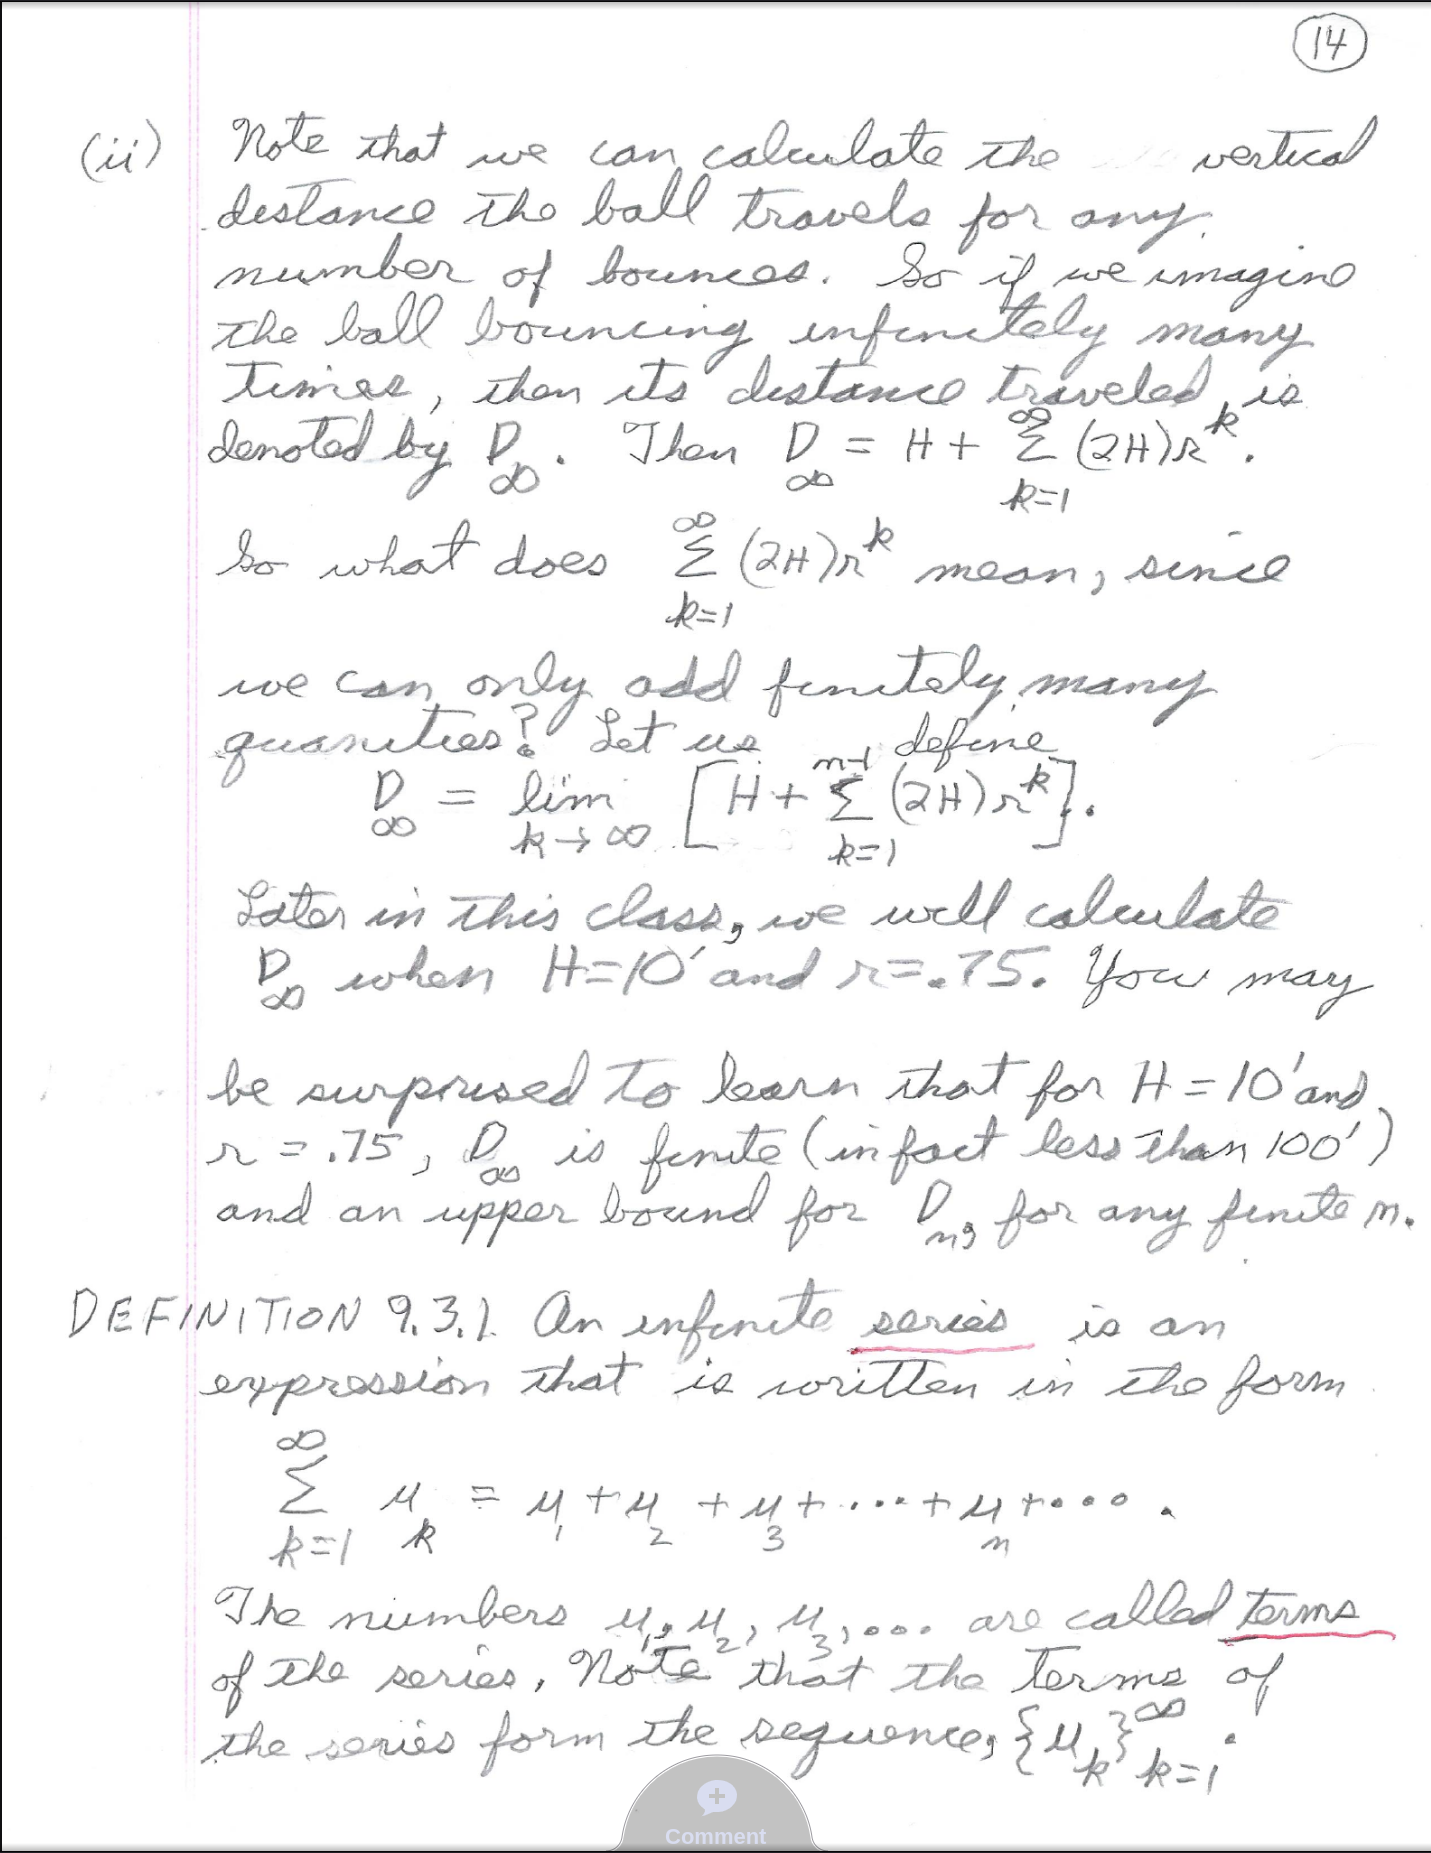 14
(ii) Note that we can calculate the vertical
distance the ball travels for any
number of bounces. So if we imagine
the ball bouncing infinitely many
times, then its distance traveled is
denoted by D_∞. Then D_∞ = H + ∞∑k=1 (2H)r^k.
So what does ∞∑k=1 (2H)r^k mean, since
we can only add finitely many
quanities? Let us define
D_∞ = lim k→∞ [H + n-1∑k=1 (2H)r^k].
Later in this class, we will calculate
D_∞ when H=10' and r=.75. You may
be surprised to learn that for H = 10' and
r = .75, D_∞ is finite (in fact less than 100')
and an upper bound for D_n, for any finite n.
DEFINITION 9.3.1. An infinite series is an
expression that is written in the form
∞∑k=1 u_k = u_1 + u_2 + u_3 + ... + u_n + ... .
The numbers u_1, u_2, u_3, ... are called terms
of the series. Note that the terms of
the series form the sequence, {u_k}^∞_k=1.
Comment